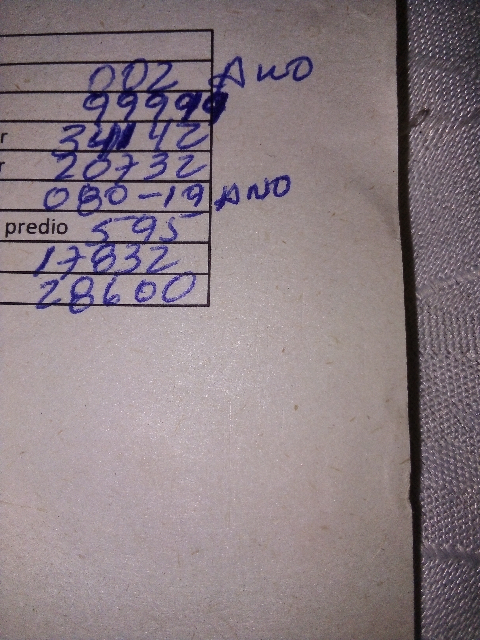 002 ANO
99999
r 34142
r 20732
080-19 ANO
predio 595
17832
28600